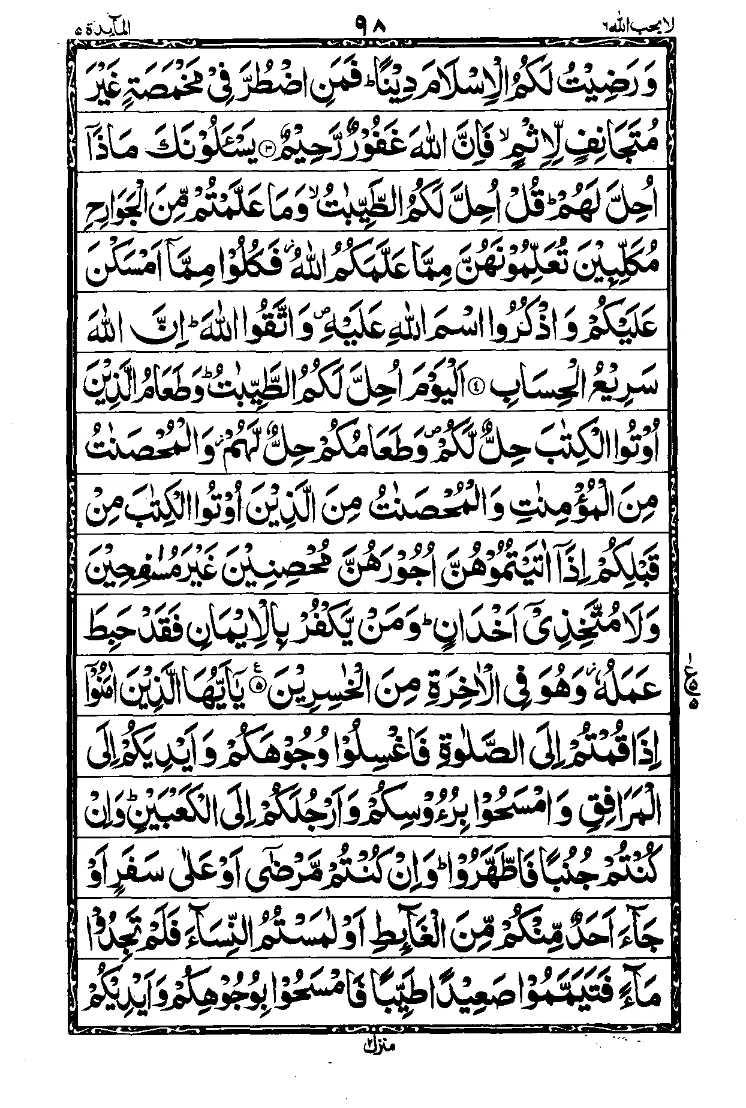 لا يحب الله ٦
٩٨
المآئدة ٥
وَ رَضِيْتُ لَكُمُ الْاِسْلَامَ دِيْنًا ؕ فَمَنِ اضْطُرَّ فِىْ مَخْمَصَةٍ غَيْرَ
مُتَجَانِفٍ لِّاِثْمٍ ۙ فَاِنَّ اللّٰهَ غَفُوْرٌ رَّحِيْمٌ ۝٣ يَسْـَٔلُوْنَكَ مَاذَاۤ
اُحِلَّ لَهُمْ ؕ قُلْ اُحِلَّ لَكُمُ الطَّيِّبٰتُ ۙ وَمَا عَلَّمْتُمْ مِّنَ الْجَوَارِحِ
مُكَلِّبِيْنَ تُعَلِّمُوْنَهُنَّ مِمَّا عَلَّمَكُمُ اللّٰهُ ؗ فَكُلُوْا مِمَّاۤ اَمْسَكْنَ
عَلَيْكُمْ وَ اذْكُرُوا اسْمَ اللّٰهِ عَلَيْهِ ۪ وَ اتَّقُوا اللّٰهَ ؕ اِنَّ اللّٰهَ
سَرِيْعُ الْحِسَابِ ۝٤ اَلْيَوْمَ اُحِلَّ لَكُمُ الطَّيِّبٰتُ ؕ وَ طَعَامُ الَّذِيْنَ
اُوْتُوا الْكِتٰبَ حِلٌّ لَّكُمْ ۪ وَ طَعَامُكُمْ حِلٌّ لَّهُمْ ؗ وَ الْمُحْصَنٰتُ
مِنَ الْمُؤْمِنٰتِ وَ الْمُحْصَنٰتُ مِنَ الَّذِيْنَ اُوْتُوا الْكِتٰبَ مِنْ
قَبْلِكُمْ اِذَاۤ اٰتَيْتُمُوْهُنَّ اُجُوْرَهُنَّ مُحْصِنِيْنَ غَيْرَ مُسٰفِحِيْنَ
وَلَا مُتَّخِذِىْۤ اَخْدَانٍ ؕ وَ مَنْ يَّكْفُرْ بِالْاِيْمَانِ فَقَدْ حَبِطَ
عَمَلُهٗ ؗ وَهُوَ فِى الْاٰخِرَةِ مِنَ الْخٰسِرِيْنَ ۝٥ ع يٰۤاَيُّهَا الَّذِيْنَ اٰمَنُوْۤا
اِذَا قُمْتُمْ اِلَى الصَّلٰوةِ فَاغْسِلُوْا وُجُوْهَكُمْ وَ اَيْدِيَكُمْ اِلَى
الْمَرَافِقِ وَ امْسَحُوْا بِرُءُوْسِكُمْ وَ اَرْجُلَكُمْ اِلَى الْكَعْبَيْنِ ؕ وَ اِنْ
كُنْتُمْ جُنُبًا فَاطَّهَّرُوْا ؕ وَ اِنْ كُنْتُمْ مَّرْضٰۤى اَوْ عَلٰى سَفَرٍ اَوْ
جَآءَ اَحَدٌ مِّنْكُمْ مِّنَ الْغَآئِطِ اَوْ لٰمَسْتُمُ النِّسَآءَ فَلَمْ تَجِدُوْا
مَآءً فَتَيَمَّمُوْا صَعِيْدًا طَيِّبًا فَامْسَحُوْا بِوُجُوْهِكُمْ وَ اَيْدِيْكُمْ
منزل ٢